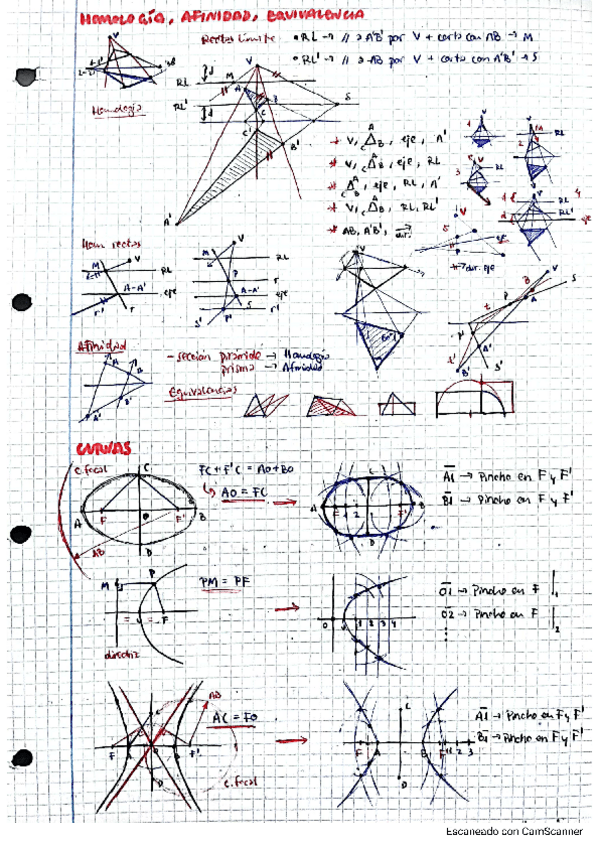 HOMOLOGÍA, AFINIDAD, EQUIVALENCIA
Rectas límite: • RL → // a A'B' por V + corta con AB → M
• RL' → // a AB por V + corta con A'B' → S
Homología
V
RL
RL'
M
A
B
C
C'
B'
S
A'
* V, CAB, eje, A'
* V, CAB, eje, RL
* CAB, eje, RL, A'
* V, CAB, RL, RL'
* AB, A'B', dir.
→ dir. eje
Hom rectas
V
M
RL
r
A-A'
eje
r'
V
M
RL
P
r
A-A'
eje
S
S'
P'
r'
Afinidad
A
B
A'
B'
- sección pirámide → Homología
prisma → Afinidad
Equivalencias
CURVAS
c. focal
C
A
F
O
F'
B
D
AB
FC + F'C = AO + BO
AO = FC
A1 → Pincho en F y F'
B1 → Pincho en F y F'
M
P
V
F
directriz
PM = PF
O V 1 2 3 4
O1 → Pincho en F
O2 → Pincho en F
AB
AC = FO
c. focal
F A B F' 1 2 3
A1 → Pincho en F y F'
B1 → Pincho en F y F'
Escaneado con CamScanner